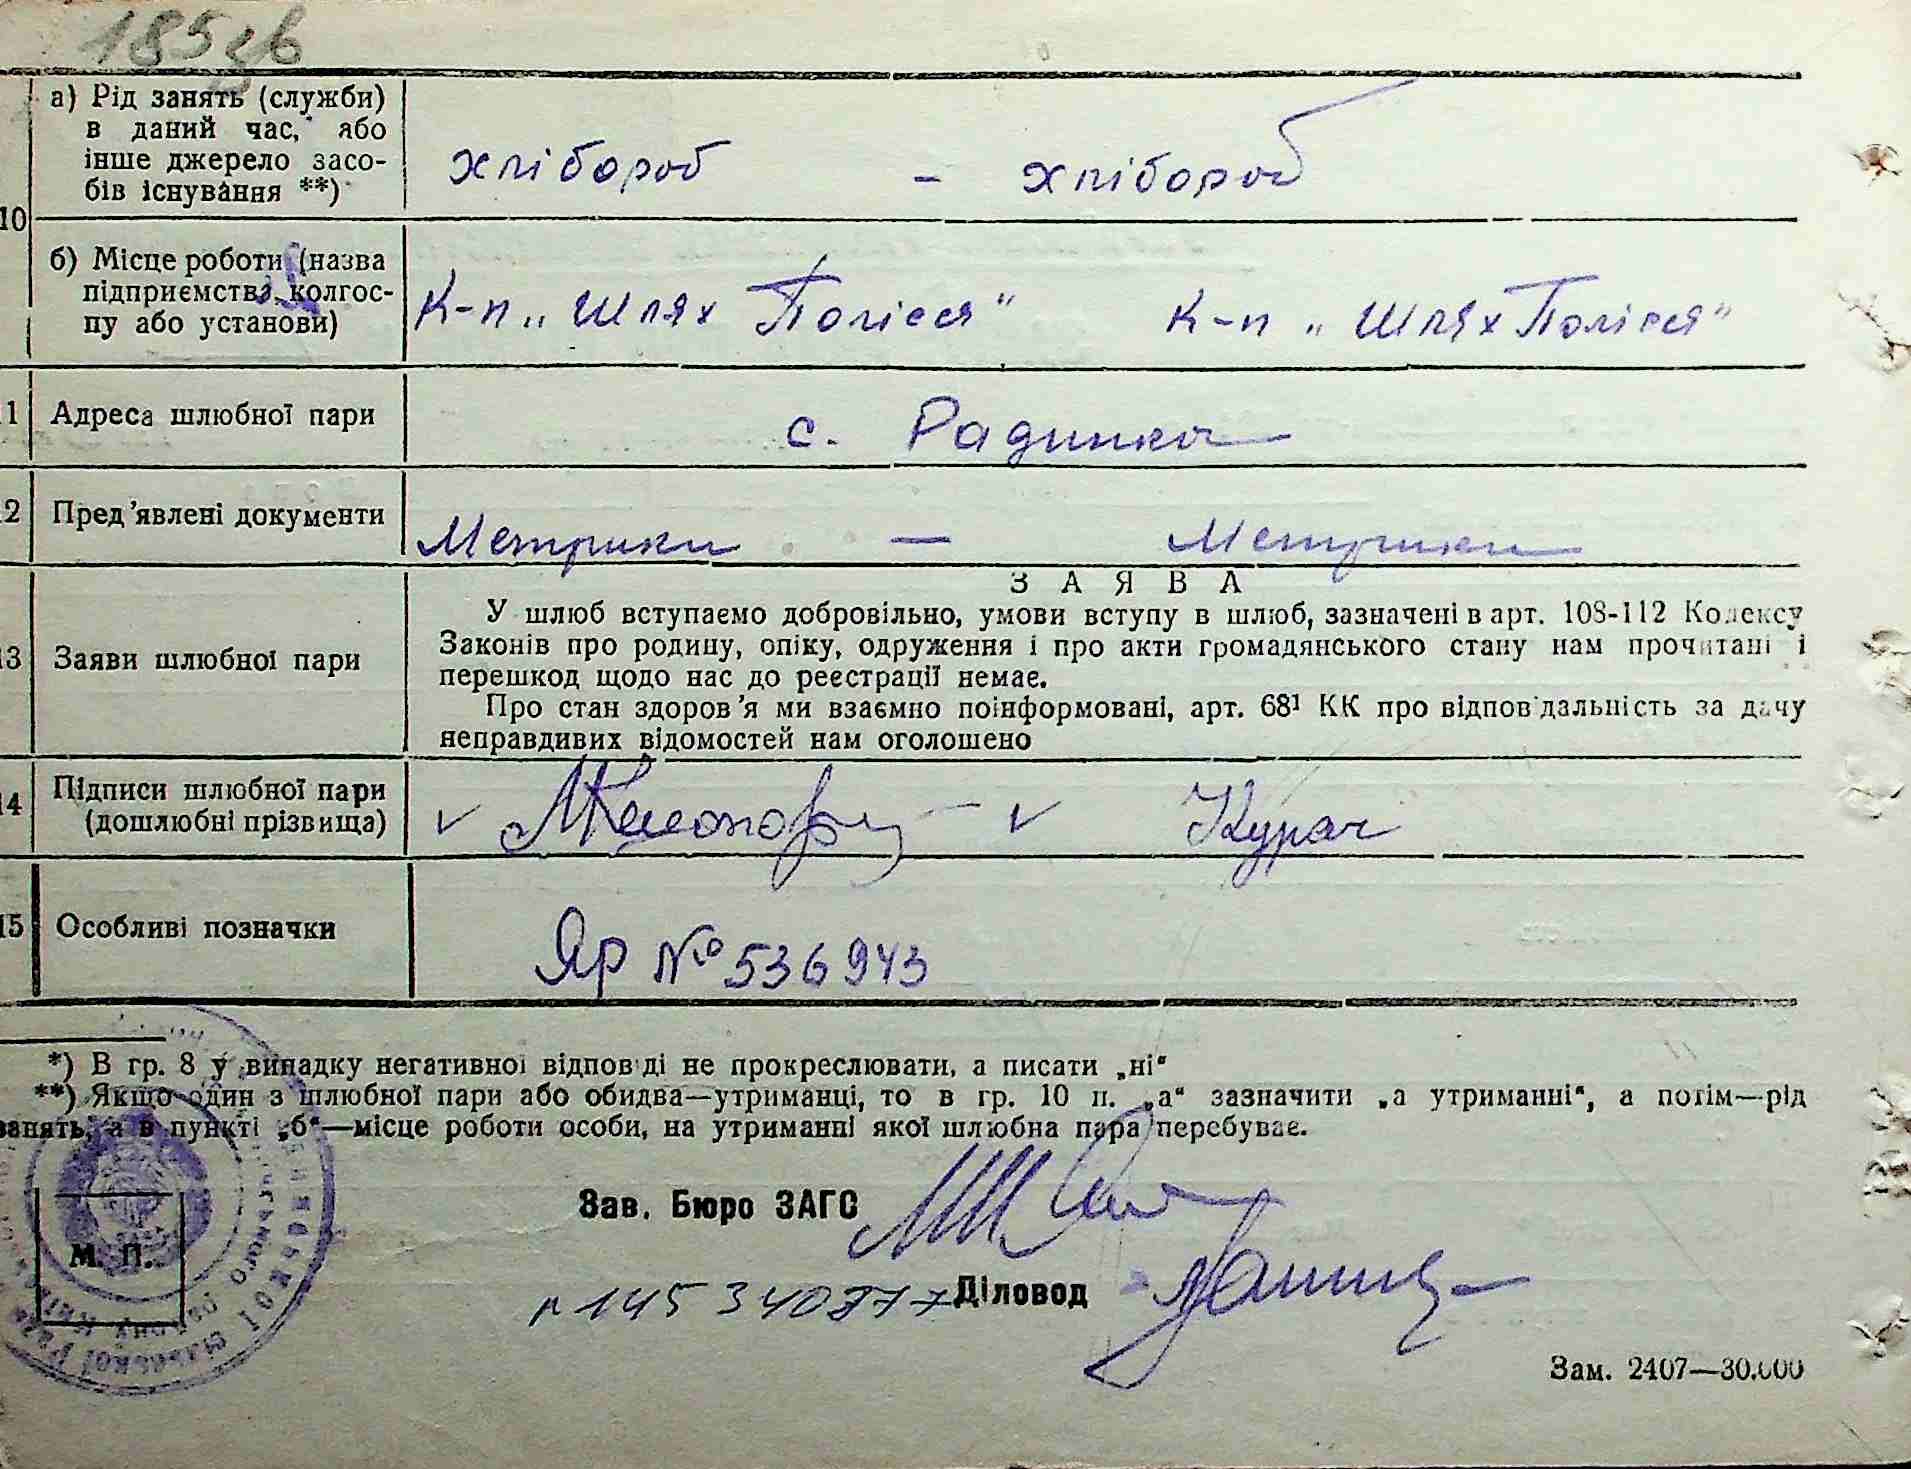 185 зв
10
а) Рід занять (служби)
в даний час, або
інше джерело засо-
бів існування **)
хлібороб - хлібороб
б) Місце роботи (назва
підприємства, колгос-
пу або установи)
К-п „Шлях Полісся" К-п „Шлях Полісся"
1 Адреса шлюбної пари
с. Радинка
2 Пред'явлені документи
Метрики — Метрики
13 Заяви шлюбної пари
ЗАЯВА
У шлюб вступаємо добровільно, умови вступу в шлюб, зазначені в арт. 108-112 Кодексу
Законів про родину, опіку, одруження і про акти громадянського стану нам прочитані і
перешкод щодо нас до реєстрації немає.
Про стан здоров'я ми взаємно поінформовані, арт. 68¹ КК про відповідальність за дачу
неправдивих відомостей нам оголошено
14 Підписи шлюбної пари
(дошлюбні прізвища)
v v Курач
15 Особливі позначки
Яр № 536943
*) В гр. 8 у випадку негативної відповіді не прокреслювати, а писати „ні"
**) Якщо один з шлюбної пари або обидва—утриманці, то в гр. 10 п. „а" зазначити „а утриманні", а потім—рід
занять, а в пункті „б"—місце роботи особи, на утриманні якої шлюбна пара перебуває.
Зав. Бюро ЗАГС
М. П.
Діловод
Зам. 2407—30.000